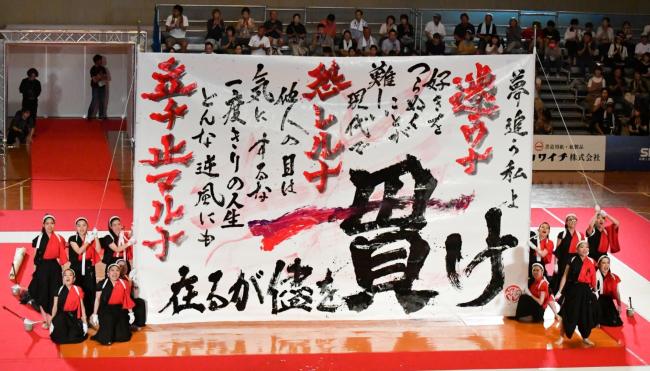 夢追う私よ
迷ウナ
好きを
つらぬく
ことが
難しい
現代で
恐レルナ
他人の目は
気にするな
一度きりの人生
どんな逆風にも
立チ止マルナ
在るが儘を
貫け
書道用紙・紙製品
カワイチ株式会社